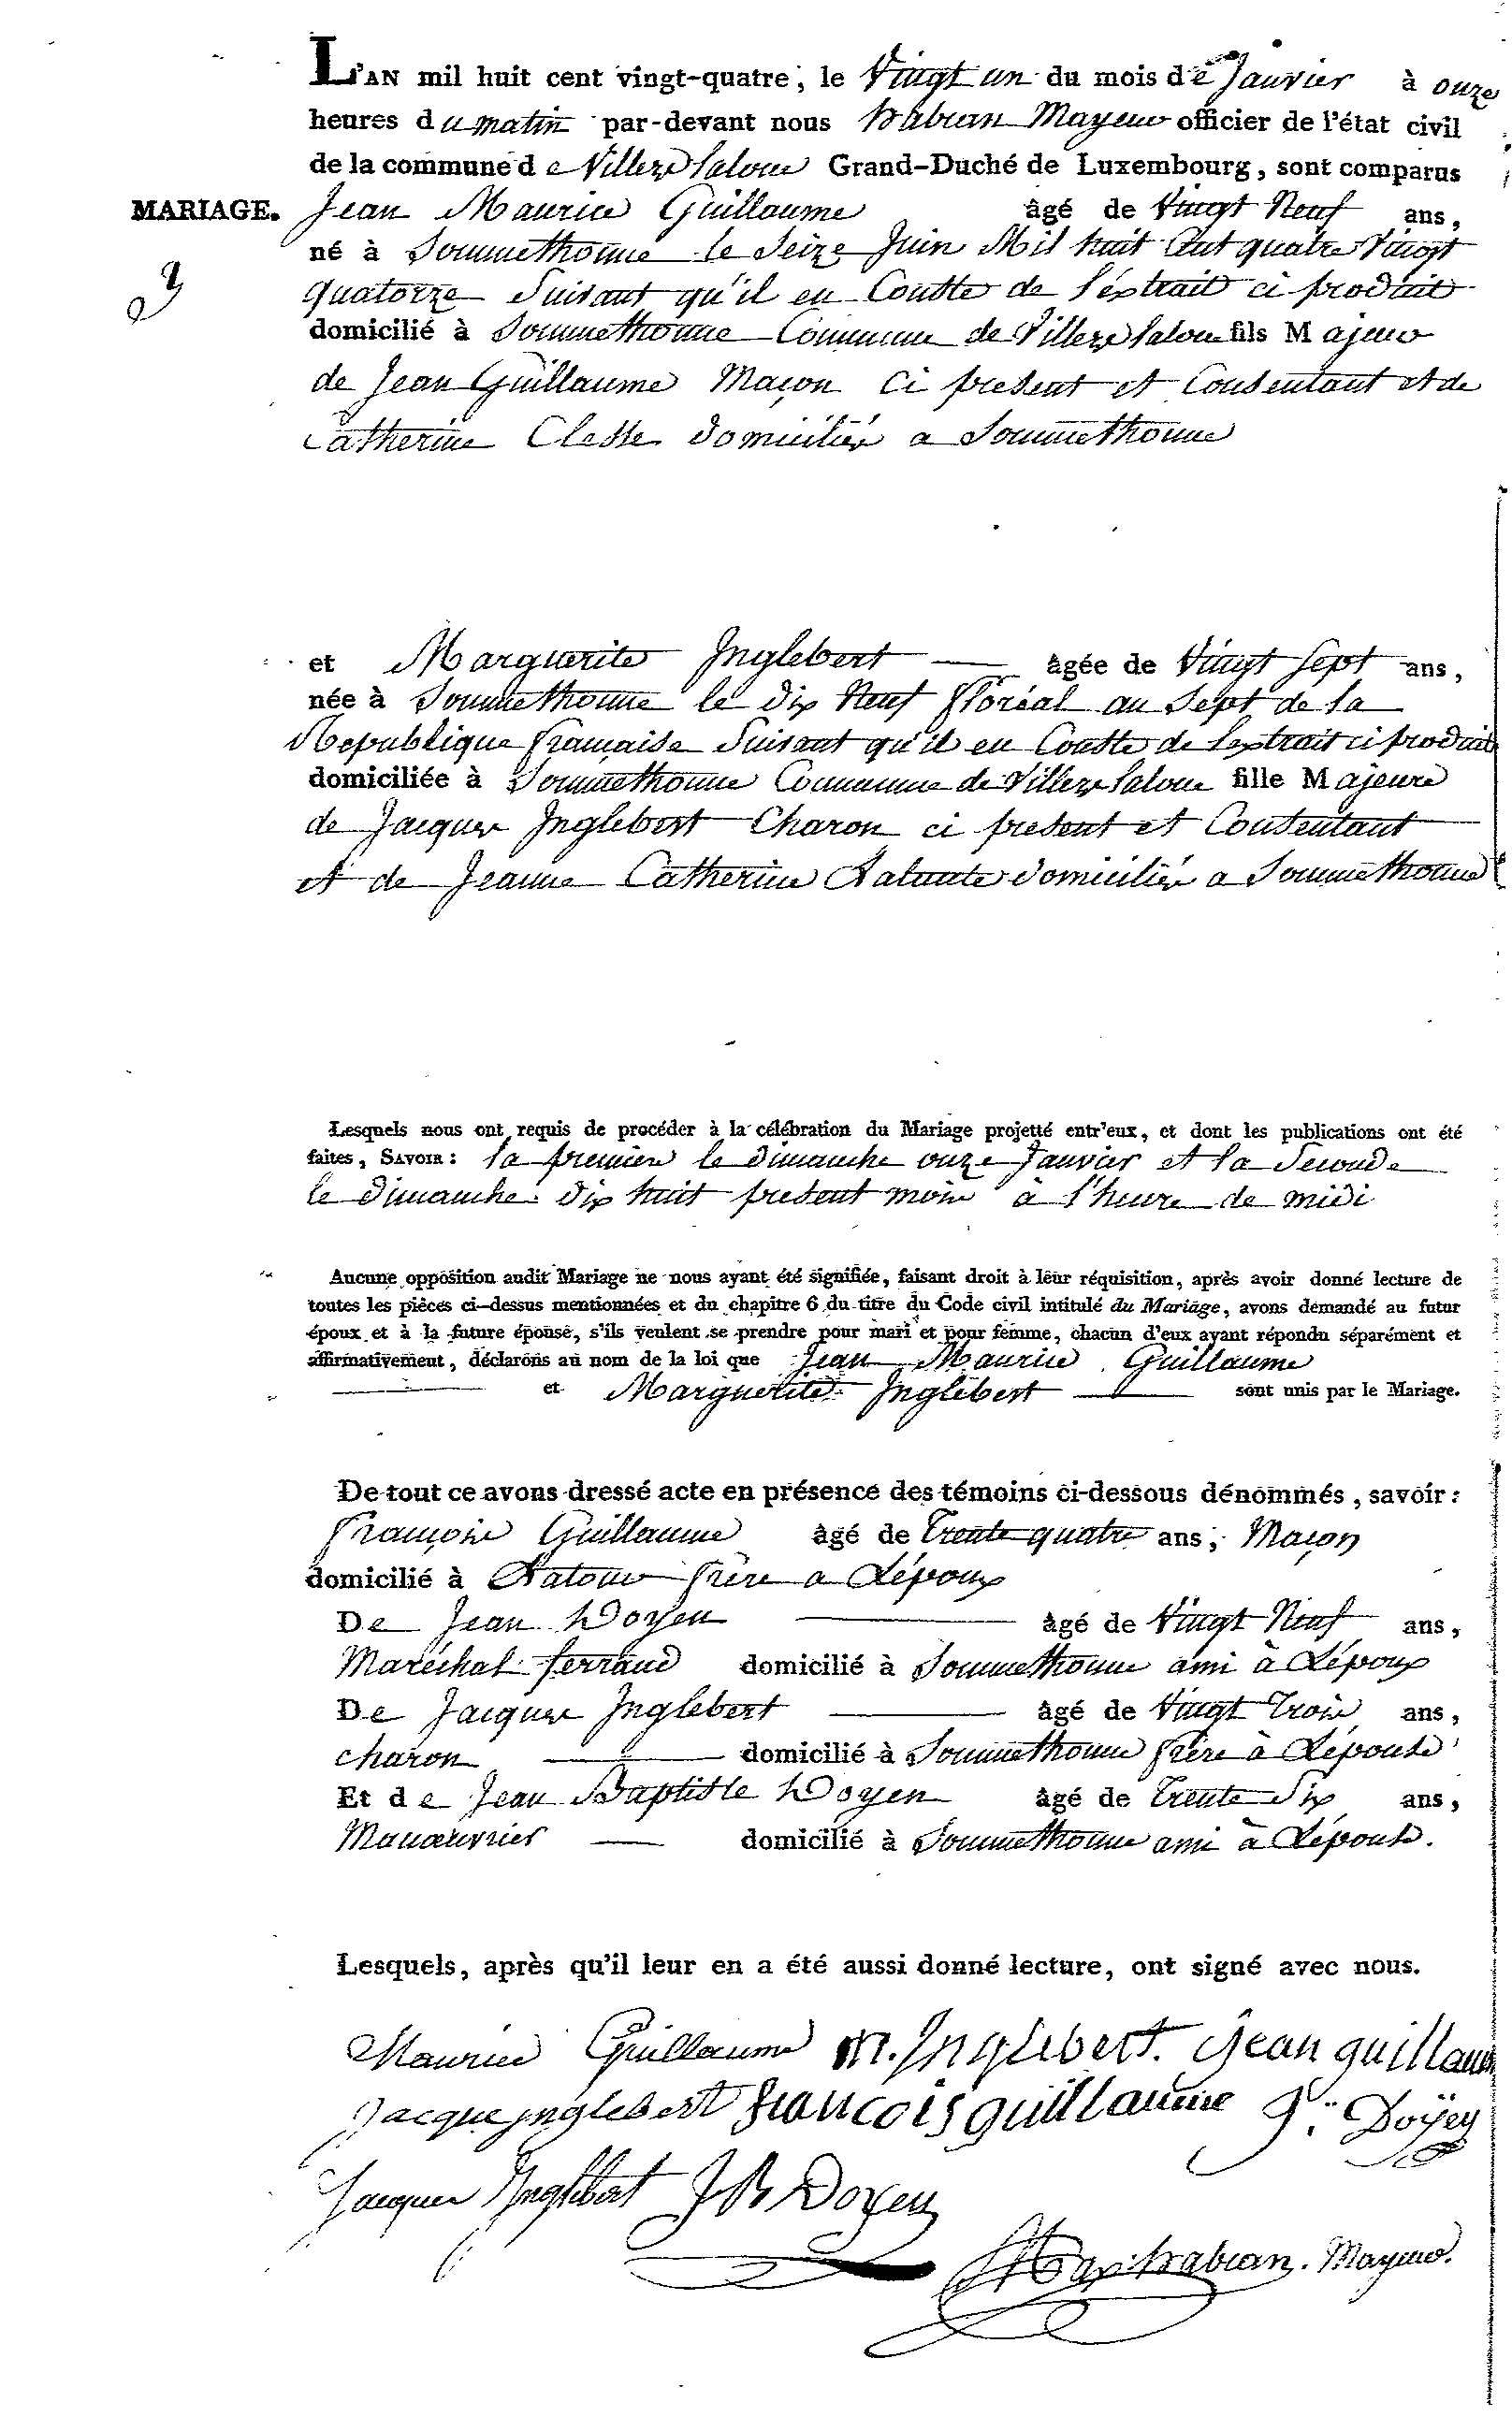 L'AN mil huit cent vingt-quatre, le Vingt un du mois de Janvier à onze
heures du matin par-devant nous habran Mayeur officier de l'état civil
de la commune de Villers Laloue Grand-Duché de Luxembourg, sont comparus
MARIAGE. Jean Maurice Guillaume âgé de Vingt Neuf ans,
né à Sommethonne le Seize Juin Mil huit Cent quatre Vingt
quatorze Suivant qu'il en Conste de l'éxtrait ci produit
domicilié à Sommethonne Commune de Villers Laloue fils Majeur
de Jean Guillaume Maçon Ci present et Consentant et de
Catherine Clesse domiciliés a Sommethonne
et Marguerite Inglebert âgée de Vingt Sept ans,
née à Sommethonne le dix Neuf floréal an Sept de la
Republique française Suivant qu'il en Conste de Lextrait ci produit
domiciliée à Sommethonne Commune de Villers Laloue fille Majeure
de Jacques Inglebert Charon ci present et Consentant
et de Jeanne Catherine domiciliés a Sommethonne
Lesquels nous ont requis de procéder à la célébration du Mariage projetté entr'eux, et dont les publications ont été
faites, SAVOIR : la premiere le dimanche onze Janvier et la Seconde
le dimanche dix huit present mois à l'heure de midi
Aucune opposition audit Mariage ne nous ayant été signifiée, faisant droit à leur réquisition, après avoir donné lecture de
toutes les pièces ci-dessus mentionnées et du chapitre 6 du titre du Code civil intitulé du Mariage, avons demandé au futur
époux et à la future épouse, s'ils veulent se prendre pour mari et pour femme, chacun d'eux ayant répondu séparément et
affirmativement, déclarons au nom de la loi que Jean Maurice Guillaume
et Marguerite Inglebert sont unis par le Mariage.
De tout ce avons dressé acte en présence des témoins ci-dessous dénommés, savoir :
françois Guillaume âgé de Trente quatre ans, Maçon
domicilié à Latour frère a Lépoux
De Jean Doyen âgé de Vingt Neuf ans,
Maréchal ferrand domicilié à Sommethonne ami à Lépoux
De Jacques Inglebert âgé de Vingt Trois ans,
charon domicilié à Sommethonne frère à Lépouse
Et de Jean Baptiste Doyen âgé de Trente Six ans,
Manœuvrier domicilié à Sommethonne ami à Lépouse.
Lesquels, après qu'il leur en a été aussi donné lecture, ont signé avec nous.
Maurice Guillaume m. Inglebert. jean guillaume
Jacque jnglebert francois guillaume J. Doÿen
Jacques Inglebert JB Doyen
habran. Mayeur.